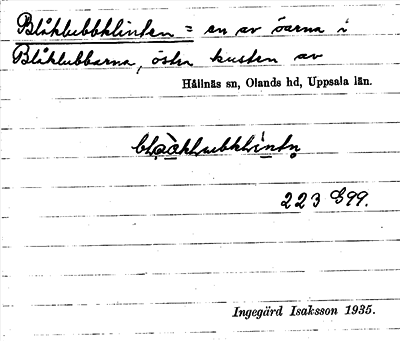 Blåklubbklinten = en av öarna i
Blåklubbarna, östra kusten av
Hållnäs sn, Olands hd, Uppsala län.
223 E99.
Ingegärd Isaksson 1935.